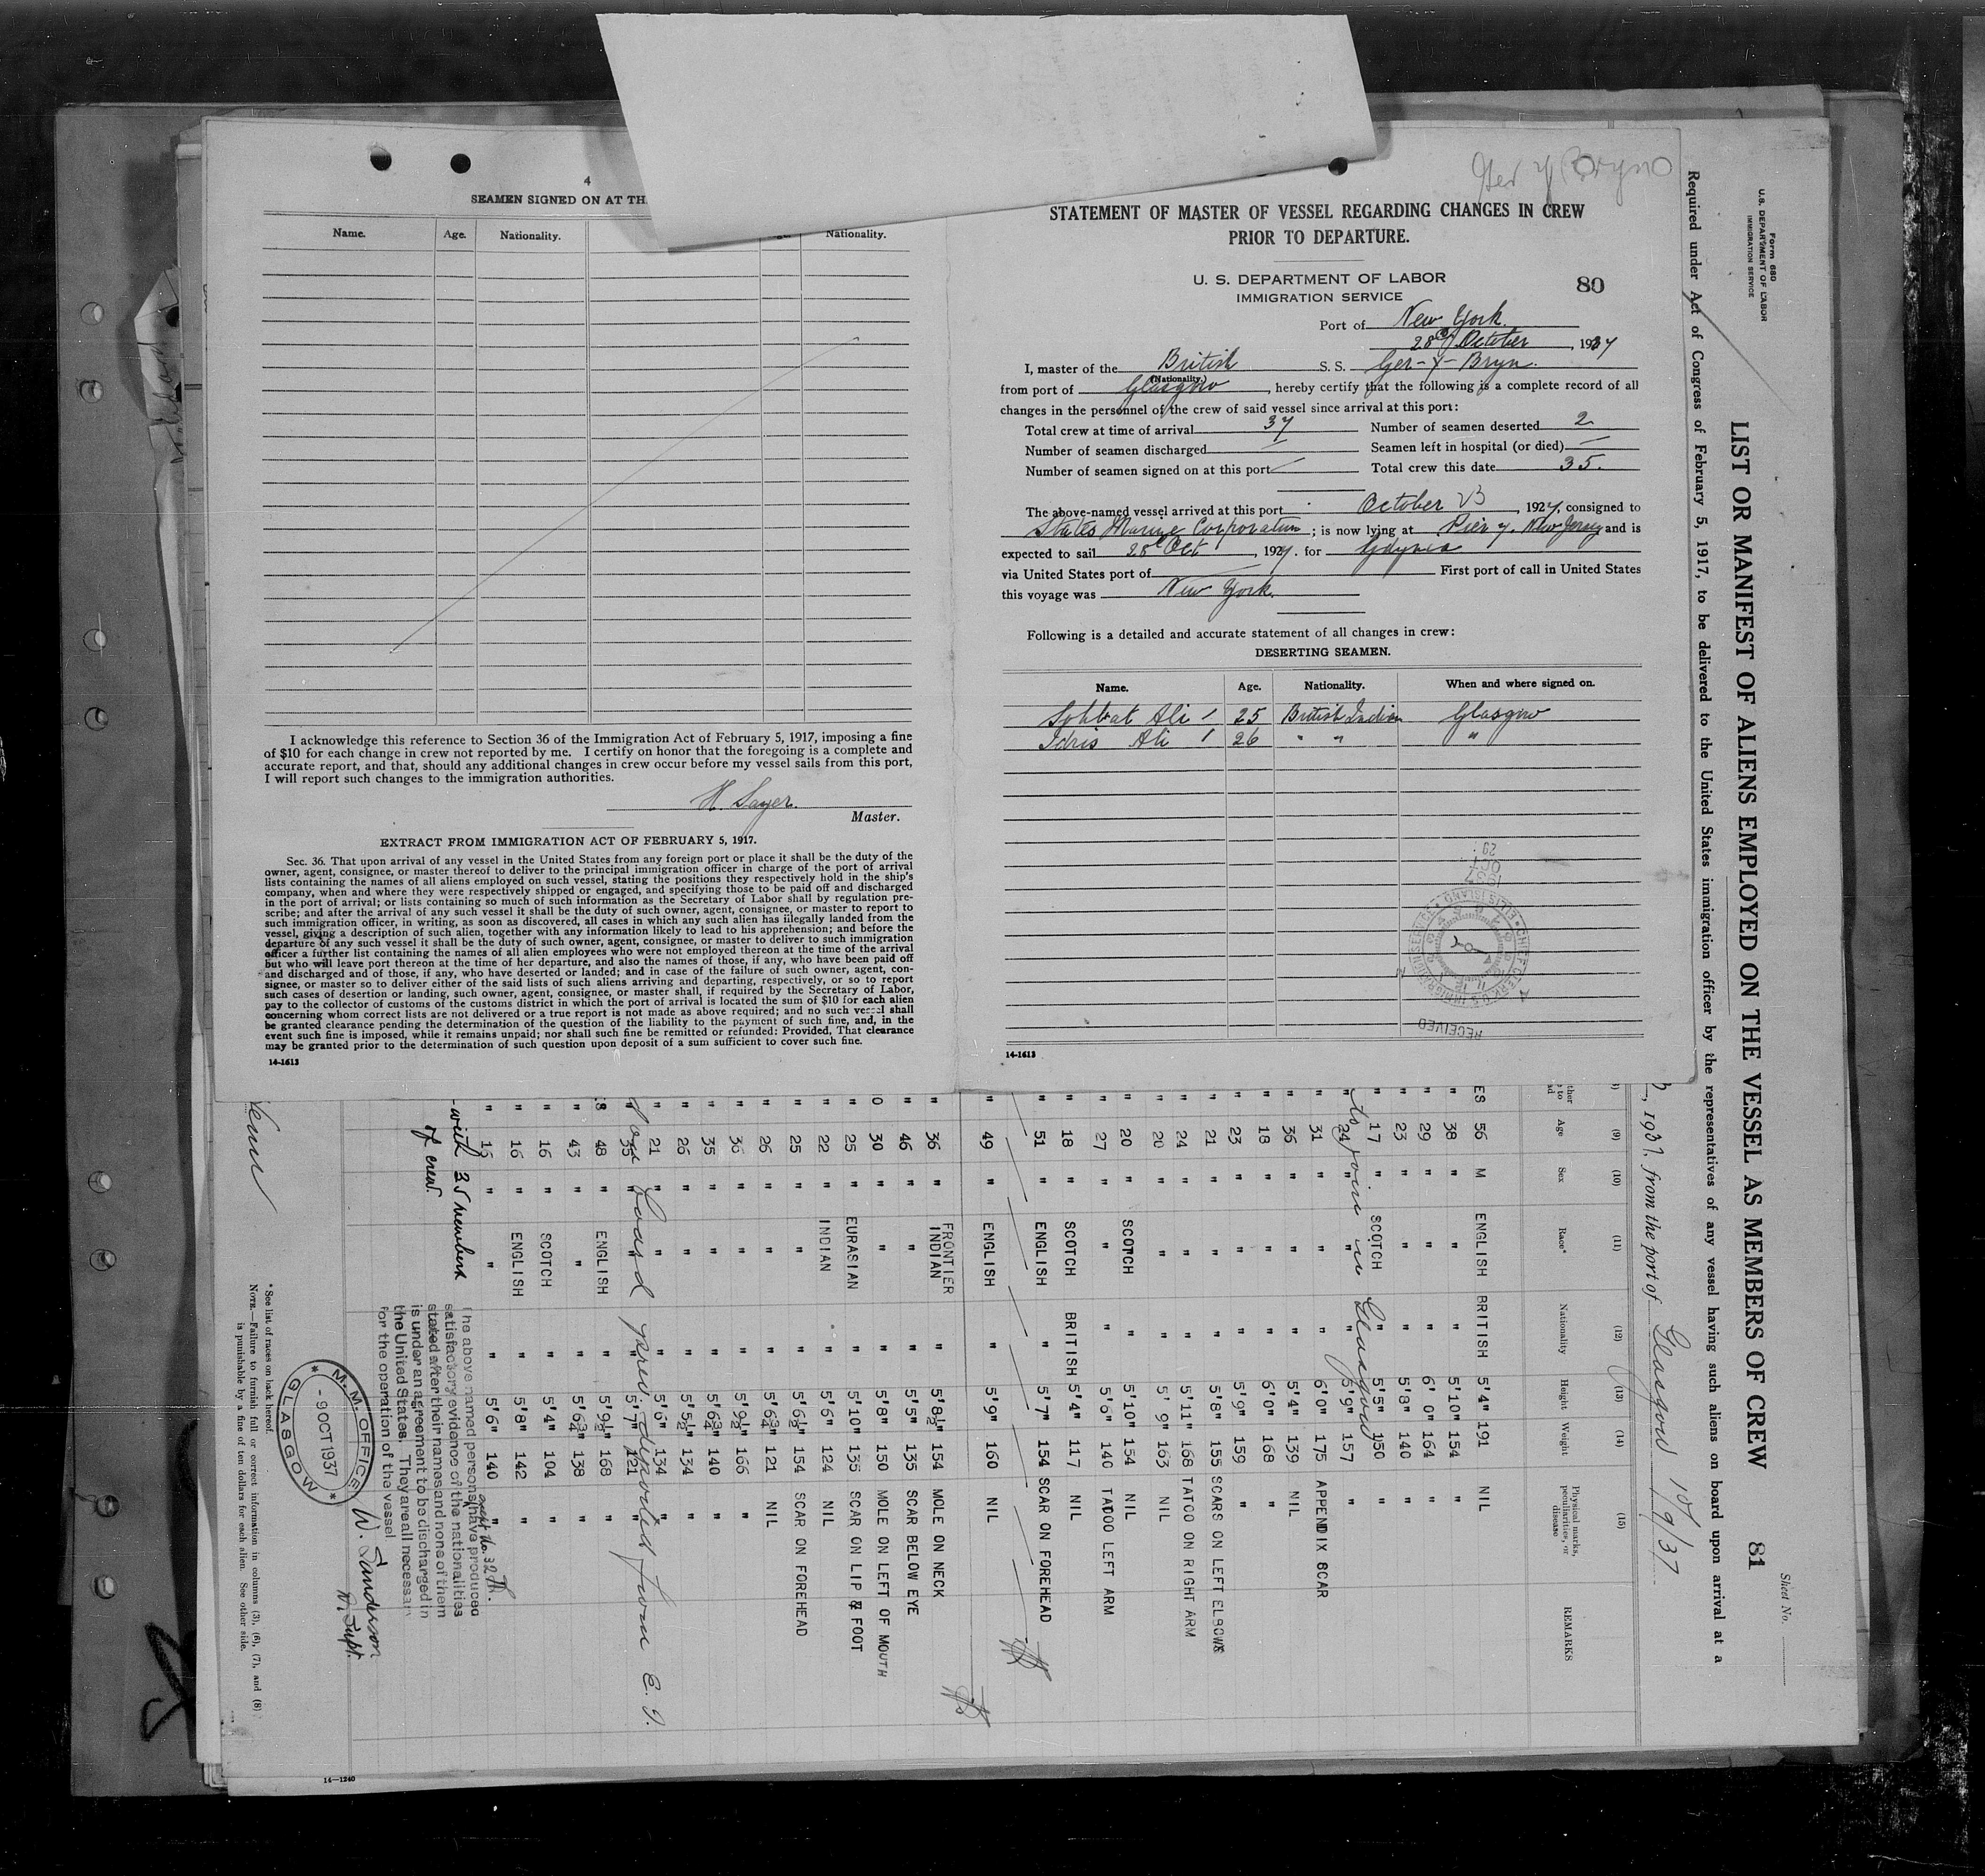 4
SEAMEN SIGNED ON AT TH
Name. Age. Nationality. Nationality.
I acknowledge this reference to Section 36 of the Immigration Act of February 5, 1917, imposing a fine
of $10 for each change in crew not reported by me. I certify on honor that the foregoing is a complete and
accurate report, and that, should any additional changes in crew occur before my vessel sails from this port,
I will report such changes to the immigration authorities.
H. Sayer.
Master.
EXTRACT FROM IMMIGRATION ACT OF FEBRUARY 5, 1917.
Sec. 36. That upon arrival of any vessel in the United States from any foreign port or place it shall be the duty of the
owner, agent, consignee, or master thereof to deliver to the principal immigration officer in charge of the port of arrival
lists containing the names of all aliens employed on such vessel, stating the positions they respectively hold in the ship's
company, when and where they were respectively shipped or engaged, and specifying those to be paid off and discharged
in the port of arrival; or lists containing so much of such information as the Secretary of Labor shall by regulation pre-
scribe; and after the arrival of any such vessel it shall be the duty of such owner, agent, consignee, or master to report to
such immigration officer, in writing, as soon as discovered, all cases in which any such alien has illegally landed from the
vessel, giving a description of such alien, together with any information likely to lead to his apprehension; and before the
departure of any such vessel it shall be the duty of such owner, agent, consignee, or master to deliver to such immigration
officer a further list containing the names of all alien employees who were not employed thereon at the time of the arrival
but who will leave port thereon at the time of her departure, and also the names of those, if any, who have been paid off
and discharged and of those, if any, who have deserted or landed; and in case of the failure of such owner, agent, con-
signee, or master so to deliver either of the said lists of such aliens arriving and departing, respectively, or so to report
such cases of desertion or landing, such owner, agent, consignee, or master shall, if required by the Secretary of Labor,
pay to the collector of customs of the customs district in which the port of arrival is located the sum of $10 for each alien
concerning whom correct lists are not delivered or a true report is not made as above required; and no such vessel shall
be granted clearance pending the determination of the question of the liability to the payment of such fine, and, in the
event such fine is imposed, while it remains unpaid; nor shall such fine be remitted or refunded: Provided, That clearance
may be granted prior to the determination of such question upon deposit of a sum sufficient to cover such fine.
14-1613
Ger y Bryn
STATEMENT OF MASTER OF VESSEL REGARDING CHANGES IN CREW
PRIOR TO DEPARTURE.
U. S. DEPARTMENT OF LABOR
IMMIGRATION SERVICE
80
Port of New York.
28th October, 1937
I, master of the British S. S. Ger-y-Bryn.
(Nationality.)
from port of Glasgow, hereby certify that the following is a complete record of all
changes in the personnel of the crew of said vessel since arrival at this port:
Total crew at time of arrival 37 Number of seamen deserted 2
Number of seamen discharged — Seamen left in hospital (or died) —
Number of seamen signed on at this port — Total crew this date 35.
The above-named vessel arrived at this port October 23, 1927, consigned to
States Marine Corporation; is now lying at Pier 7. New Jersey and is
expected to sail 28th Oct, 1927. for Gdynia
via United States port of — First port of call in United States
this voyage was New York.
Following is a detailed and accurate statement of all changes in crew:
DESERTING SEAMEN.
Name. Age. Nationality. When and where signed on.
Sohbat Ali / 25 British Indian Glasgow
Idris Ali / 26 " " "
RECEIVED
CHIEF CLERK U.S. IMMIGRATION SERVICE ELLIS ISLAND
1937 OCT 29
14-1613
Form 680
U.S. DEPARTMENT OF LABOR
IMMIGRATION SERVICE
Sheet No.
LIST OR MANIFEST OF ALIENS EMPLOYED ON THE VESSEL AS MEMBERS OF CREW 81
Required under Act of Congress of February 5, 1917, to be delivered to the United States immigration officer by the representatives of any vessel having such aliens on board upon arrival at a
, 1937, from the port of Glasgow 10/9/37
(9) (10) (11) (12) (13) (14) (15)
Age Sex Race* Nationality Height Weight Physical marks, peculiarities, or disease REMARKS
ES 56 M ENGLISH BRITISH 5'4" 191 NIL
" 38 " " " 5'10" 154 "
" 29 " " " 6'0" 164 "
" 23 " " " 5'8" 140 "
" 17 " SCOTCH " 5'5" 150 "
to join in Glasgow
" 24 " " " 5'9" 157 "
" 31 " " " 6'0" 175 APPENDIX SCAR
" 36 " " " 5'4" 139 NIL
" 18 " " " 6'0" 168 "
" 23 " " " 5'9" 159 "
" 21 " " " 5'8" 155 SCARS ON LEFT ELBOWS
" 24 " " " 5'11" 168 TATOO ON RIGHT ARM
" 20 " " " 5'9" 163 NIL
" 20 " SCOTCH " 5'10" 154 NIL
" 27 " " " 5'6" 140 TATOO LEFT ARM
" 18 " SCOTCH BRITISH 5'4" 117 NIL
" 51 " ENGLISH " 5'7" 154 SCAR ON FOREHEAD
" 49 " ENGLISH " 5'9" 160 NIL
" 36 " FRONTIER INDIAN " 5'8½" 154 MOLE ON NECK
" 46 " " " 5'5" 135 SCAR BELOW EYE
0 30 " " " 5'8" 150 MOLE ON LEFT OF MOUTH
" 25 " EURASIAN " 5'10" 135 SCAR ON LIP & FOOT
" 22 " INDIAN " 5'6" 124 NIL
" 25 " " " 5'6½" 154 SCAR ON FOREHEAD
" 26 " " " 5'6¾" 121 NIL
" 36 " " " 5'9½" 166 "
" 35 " " " 5'6¾" 140 "
" 26 " " " 5'5½" 134 "
" 21 " " " 5'6" 134 "
" 35 " " " 5'7" 121 "
on board prev. deported from E. I.
S 48 " ENGLISH " 5'9½" 168 "
" 43 " " " 5'6¾" 138 "
" 16 " SCOTCH " 5'4" 104 "
" 16 " ENGLISH " 5'8" 142 "
" 15 " " " 5'6" 140 "
with 35 members
of crew.
except No. 32
The above named persons have produced
satisfactory evidence of the nationalities
stated after their names and none of them
is under an agreement to be discharged in
the United States. They are all necessary
for the operation of the vessel
W. Sanderson
D. Supt.
M. M. OFFICE
- 9 OCT 1937
GLASGOW
* See list of races on back hereof.
NOTE.—Failure to furnish full or correct information in columns (3), (6), (7), and (8)
is punishable by a fine of ten dollars for each alien. See other side.
14—1240